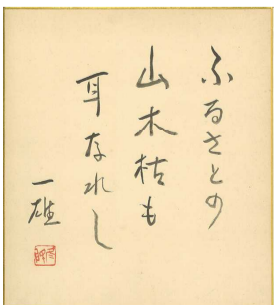 ふるさとの
山木枯も
耳なれし
一雄